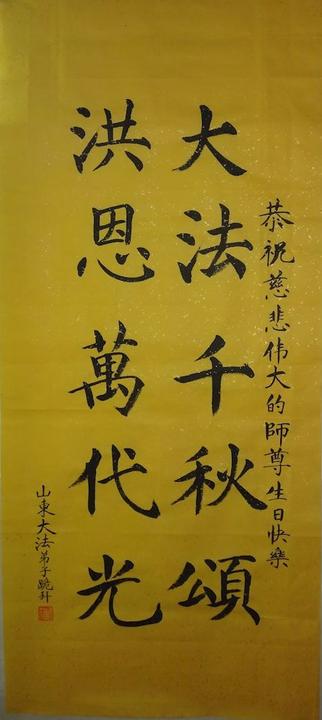 恭祝慈悲伟大的師尊生日快樂
大法千秋頌
洪恩萬代光
山東大法弟子跪拜